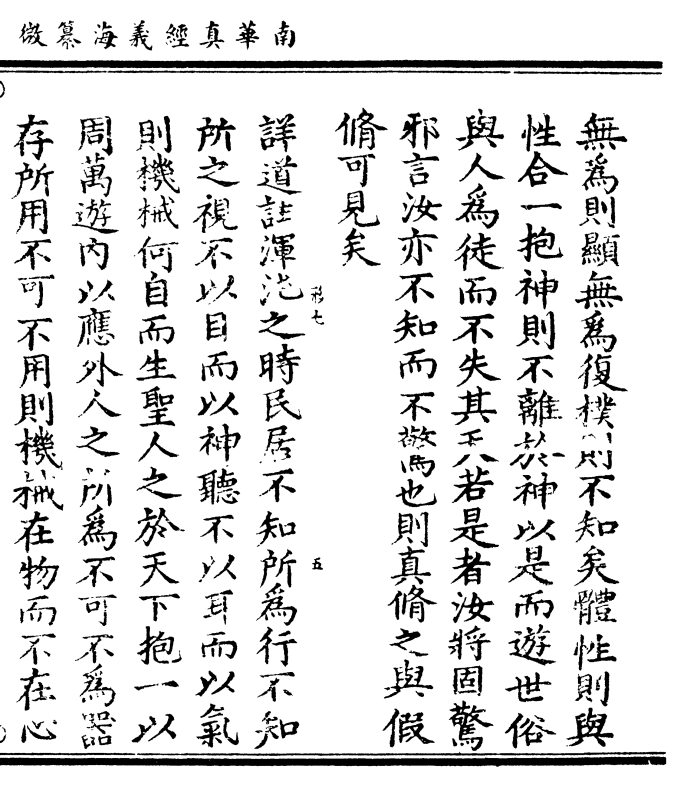 南華真經義海纂微
無為則顯無為復樸則不知矣體性則與
性合一抱神則不離於神以是而遊世俗
與人為徒而不失其天若是者汝將固驚
邪言汝亦不知而不驚也則真脩之與假
脩可見矣
詳道註渾沌之時民居不知所為行不知
形七
五
所之視不以目而以神聽不以耳而以氣
則機械何自而生聖人之於天下抱一以
周萬遊內以應外人之所為不可不為器
存所用不可不用則機械在物而不在心